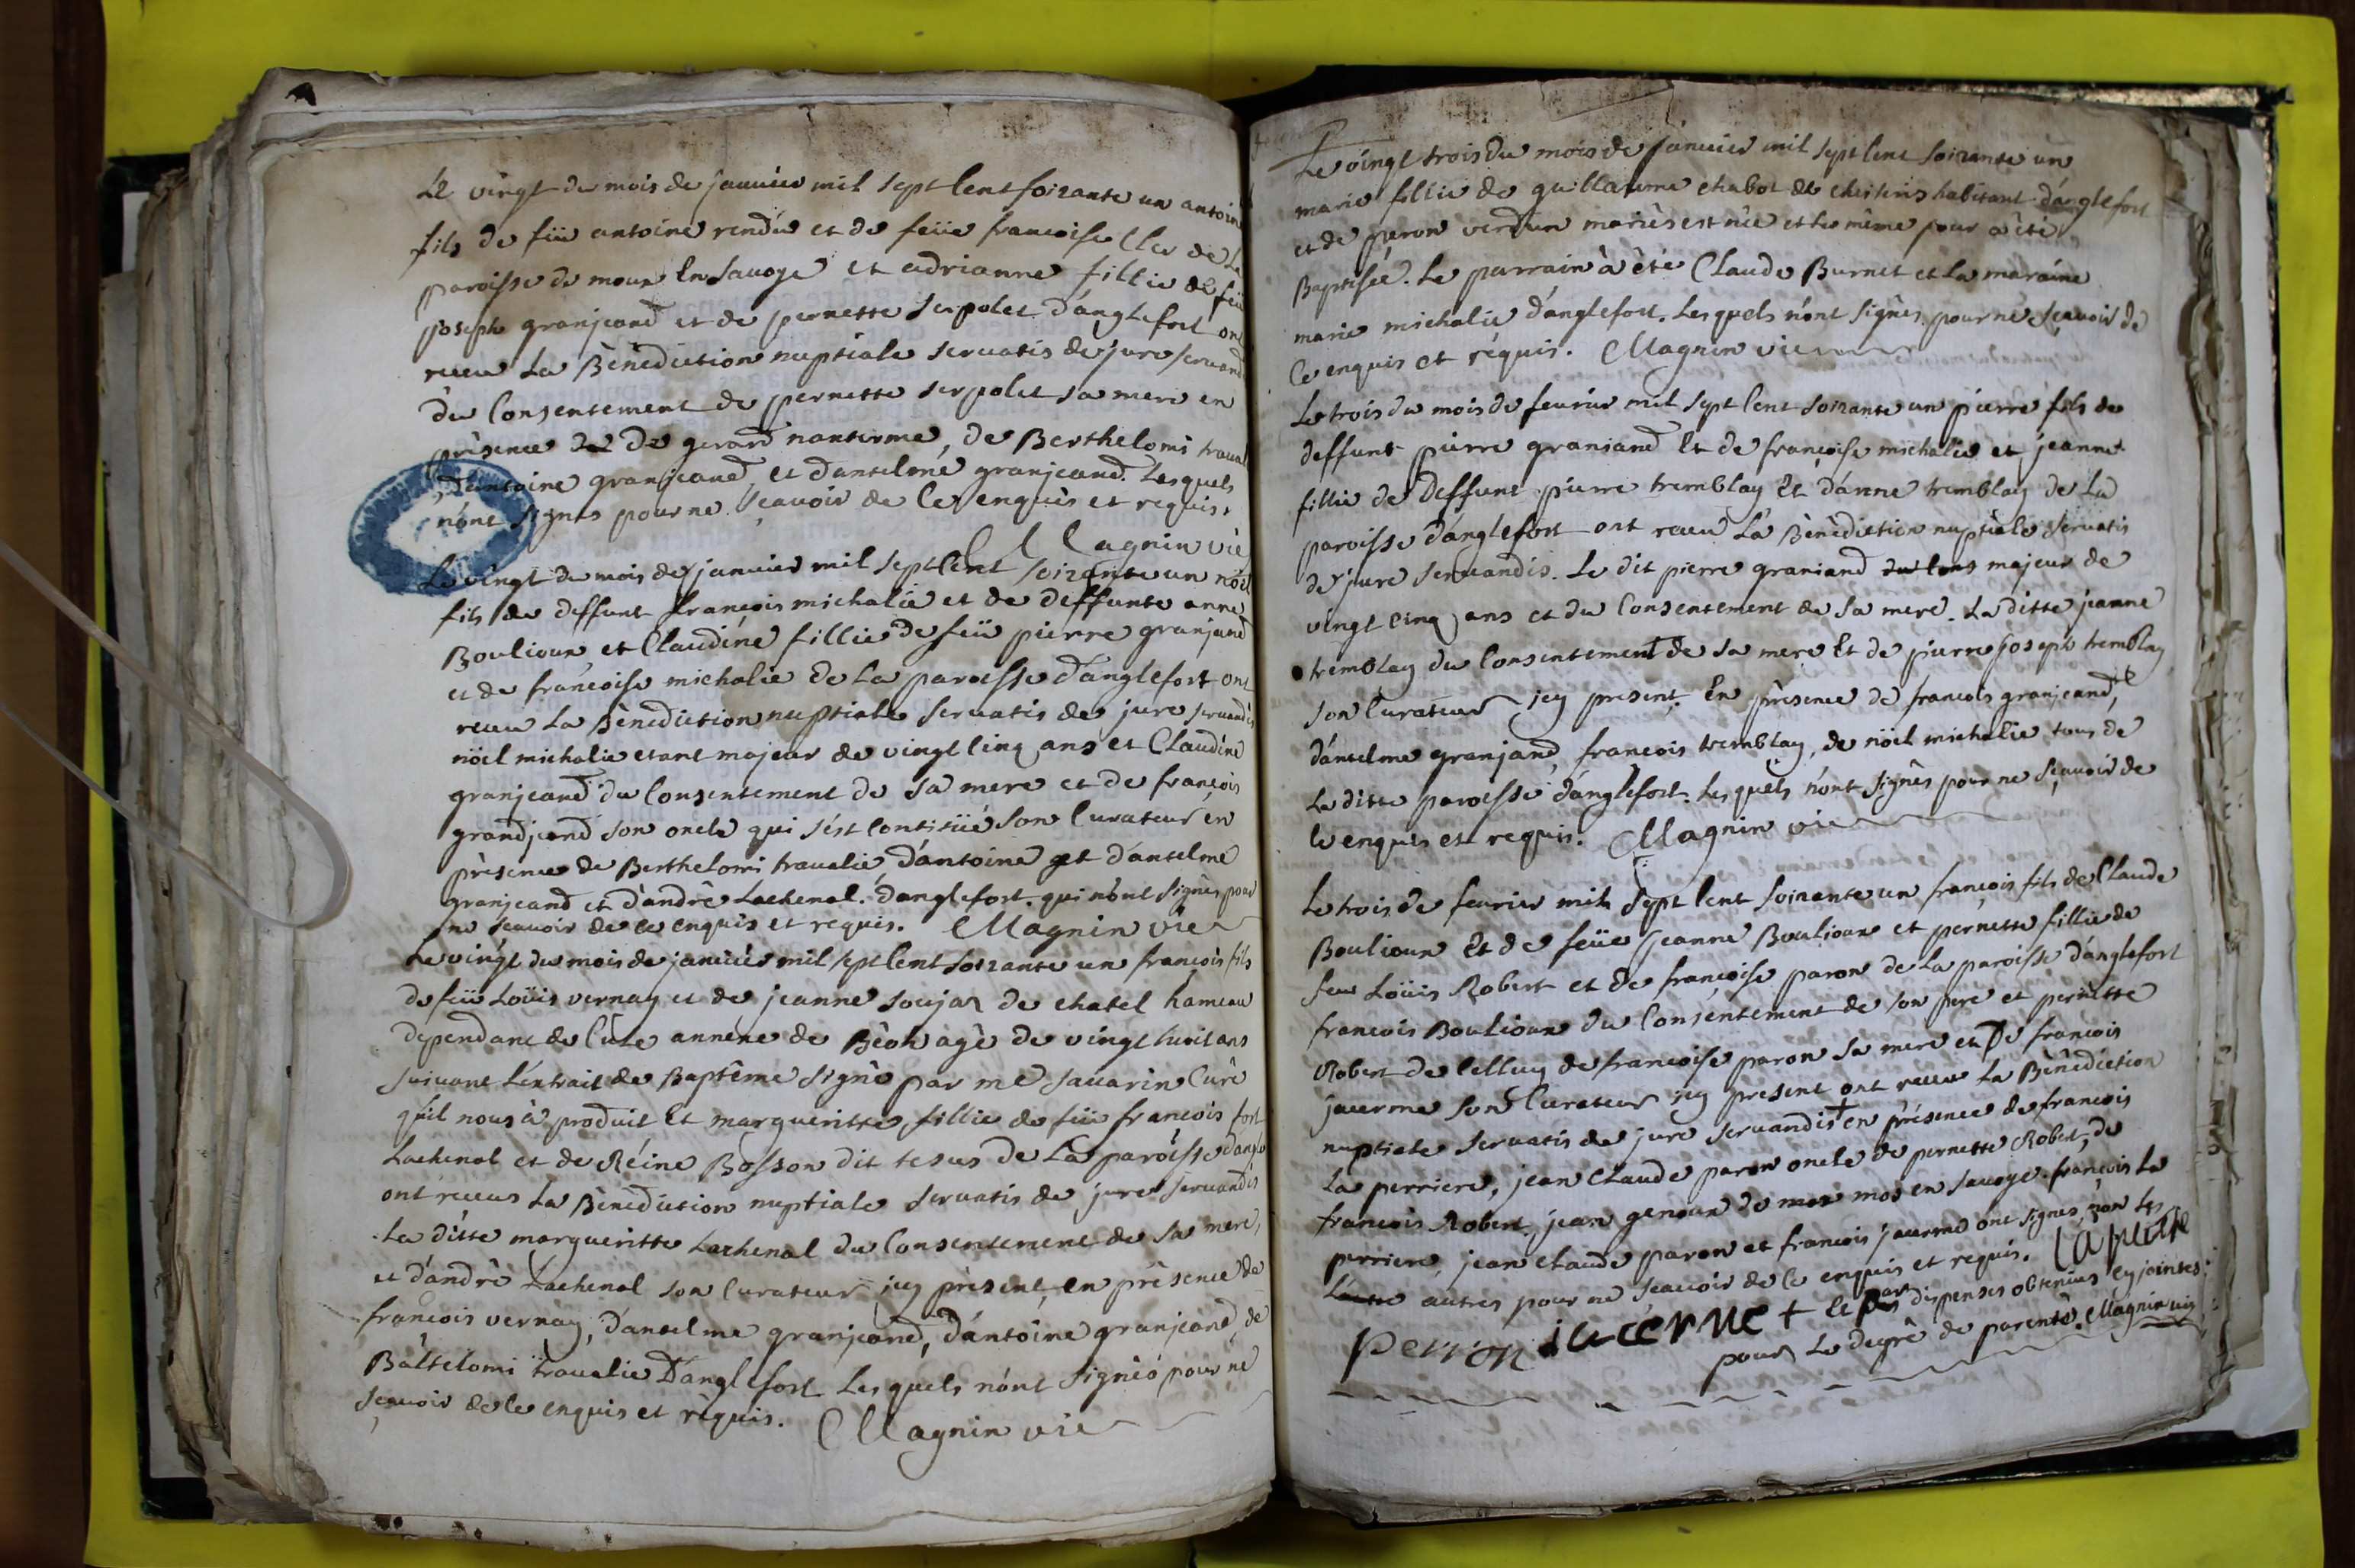 Le vingt du mois de janvier mil sept Cent soixante un antoin
fils de füe antoine rendu et de feüe francoise Cler de La
paroisse de moux En Savoye et adrianne fillie de feü
joseph granjeand et de pernette serpolet d'anglefort ont
receu La Bénédiction nuptiale servatis de jure servand
du Consentement de pernette serpolet sa mere en
présence de gerard nanterme, de Berthelomi traual
d'antoine granjeand, et d'antelme granjeand. Lesquels
n'ont signés pour ne sçavoir de Ce enquis et requis.
Magnin vic
Le vingt du mois de janvier mil sept Cent soixante un nöel
fils de deffunt françois michalie et de deffunte anne
Boulioux et Claudine fillie de feü pierre granjand
et de françoise michalie de La paroisse d'anglefort ont
receu La Bénédiction nuptiale servatis de jure servandis
nöel michalie etant majeur de vingt Cinq ans et Claudine
granjeand du Consentement de sa mere et de françois
grandjeand son oncle qui s'est Contitüé son Curateur en
présence de Berthelomi traualie, d'antoine et d'antelme
granjeand et d'andrê Lachenal. d'anglefort. qui n'ont signés pour
ne sçavoir de ce enquis et requis. Magnin vic
Le vingt du mois de janvier mil sept Cent soixante un françois fils
de feü Loüis vernay et de jeanne soujaz de chatel hameau
dependant de Cure annexe de Béon agê de vingt huit ans
suivant l'extrait de Baptême signê par me savarin Curê
qu'il nous à produit Et margueritte fillie de feü francois fort
Lachenal et de Réine Bosson dit tesus de La paroisse danglef
ont receus La Bénédiction nuptiale servatis de jure servandis
La ditte margueritte Lachenal du Consentement de sa mere,
et d'andrê Lachenal son Curateur jcy présent, en présence de
francois vernay, d'antelme granjeand, d'antoine granjeand, de
Baltelomi traualie D'anglefort Lesquels n'ont signés pour ne
sçavoir de Ce enquis et réquis. Magnin vic
Le vingt trois du mois de janvier mil sept Cent soixante un
marie fillie de guillaume chabot de habitant d'anglefort
et de peron verdun mariés est née et Le même jour à été
Baptisée. Le parrain à été Claude Burnet et La maraine
marie michalie d'anglefort. Lesquels n'ont signés pour ne sçavoir de
Ce enquis et réquis. Magnin vic
Le trois du mois de feurier mil sept Cent soixante un pierre fils de
deffunt pierre graniand Et de françoise michalie et jeanne
fillie de deffunt pierre tremblay Et d'anne tremblay de La
paroisse d'anglefort ont receu La Bénédiction nuptiale servatis
de jure servandis. Le dit pierre graniand du Cons majeur de
vingt Cinq ans et du Consentement de sa mere. La ditte jeanne
tremblay du Consentement de sa mere Et de pierre joseph tremblay
son Curateur jcy present. En présence de francois granjeand,
d'antelme granjand, francois tremblay, de nöel michalie tous de
La ditte paroisse d'anglefort. Lesquels n'ont signés pour ne sçavoir de
Ce enquis et requis. Magnin vic
Le trois de feurier mil sept Cent soixante un francois fils de Claude
Boulioux Et de feüe jeanne Boulioux et pernette fillie de
feu Loüis Robert et de francoise paron de La paroisse d'anglefort
francois Boulioux du Consentement de son pere et pernette
Robert de Celluy de francoise paron sa mere et De francois
jacerme son Curateur jcy present ont receu La Bénédiction
nuptiale servatis de jure servandis + en présence de francois
La perriere, jean Claude paron oncle de pernette Robert, de
francois Robert, jean genoux de mos en savoye. francois La
perriere, jean Claude paron et francois jacerme ont signés non Les
autres pour ne sçavoir de Ce enquis et requis. Laperire
Perron jacerme + et par dispenses obtenües cy jointes
pour Le degré de parenté. Magnin vic